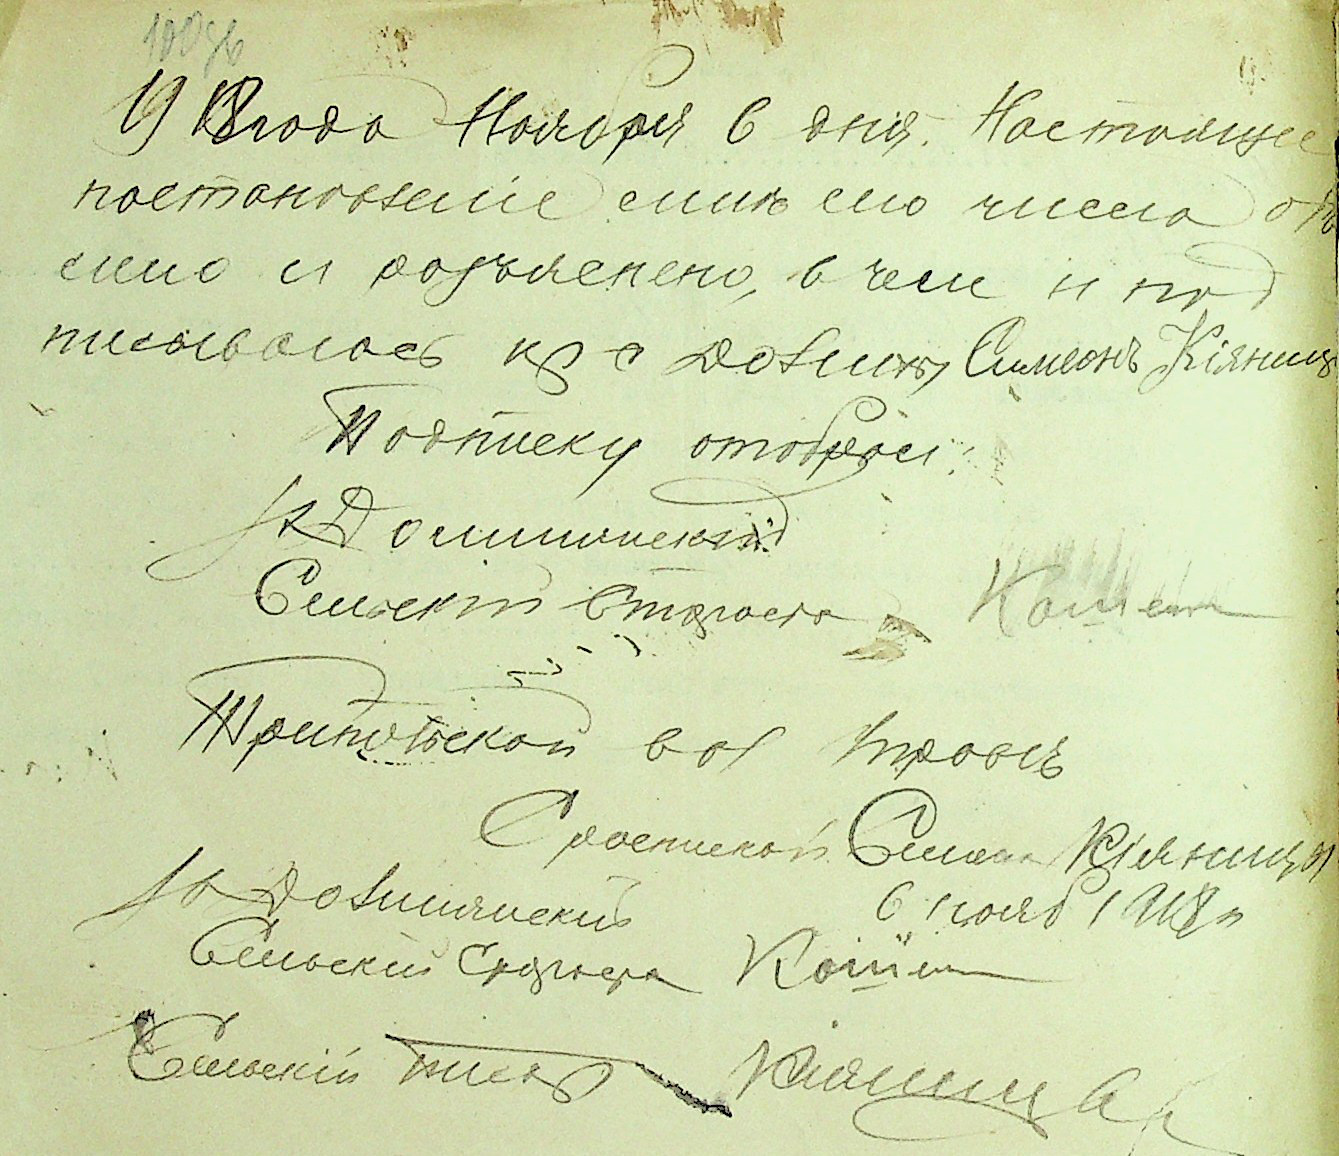 1918 года Ноября 6 дня. Настояще
постановленіе мнѣ сего числа объ
лено и розъяснено, в чем и под
писываюсь кр с Долины, Симеонъ Кіяниця
Подписку отобрал:
Долинянский
Сельскій Староста Кошель
Трипольской вол Управѣ
С роспиской Семена Кіяници
6 нояб 1918 г
Долинянский
Сельскій Староста Кошель
Сельскій писарь Кіяниця